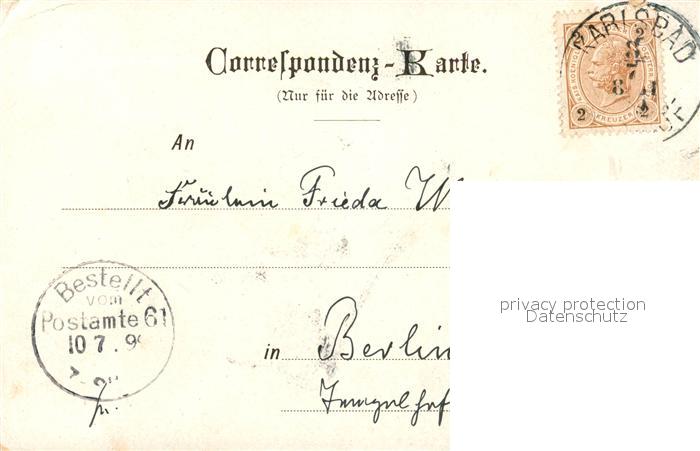 Correspondenz-Karte.
(Nur für die Adresse)
An
Fräulein Frieda W
in Berlin
Bestellt
vom
Postamte 61
10 7. 9
KARLSBAD
8.
2 KREUZER 2
privacy protection
Datenschutz